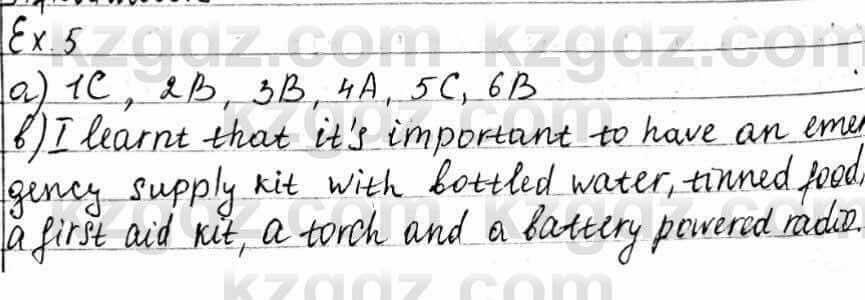 Ex. 5
a) 1C, 2B, 3B, 4A, 5C, 6B
b) I learnt that it's important to have an emer
gency supply kit with bottled water, tinned food,
a first aid kit, a torch and a battery powered radio.
kzgdz.com